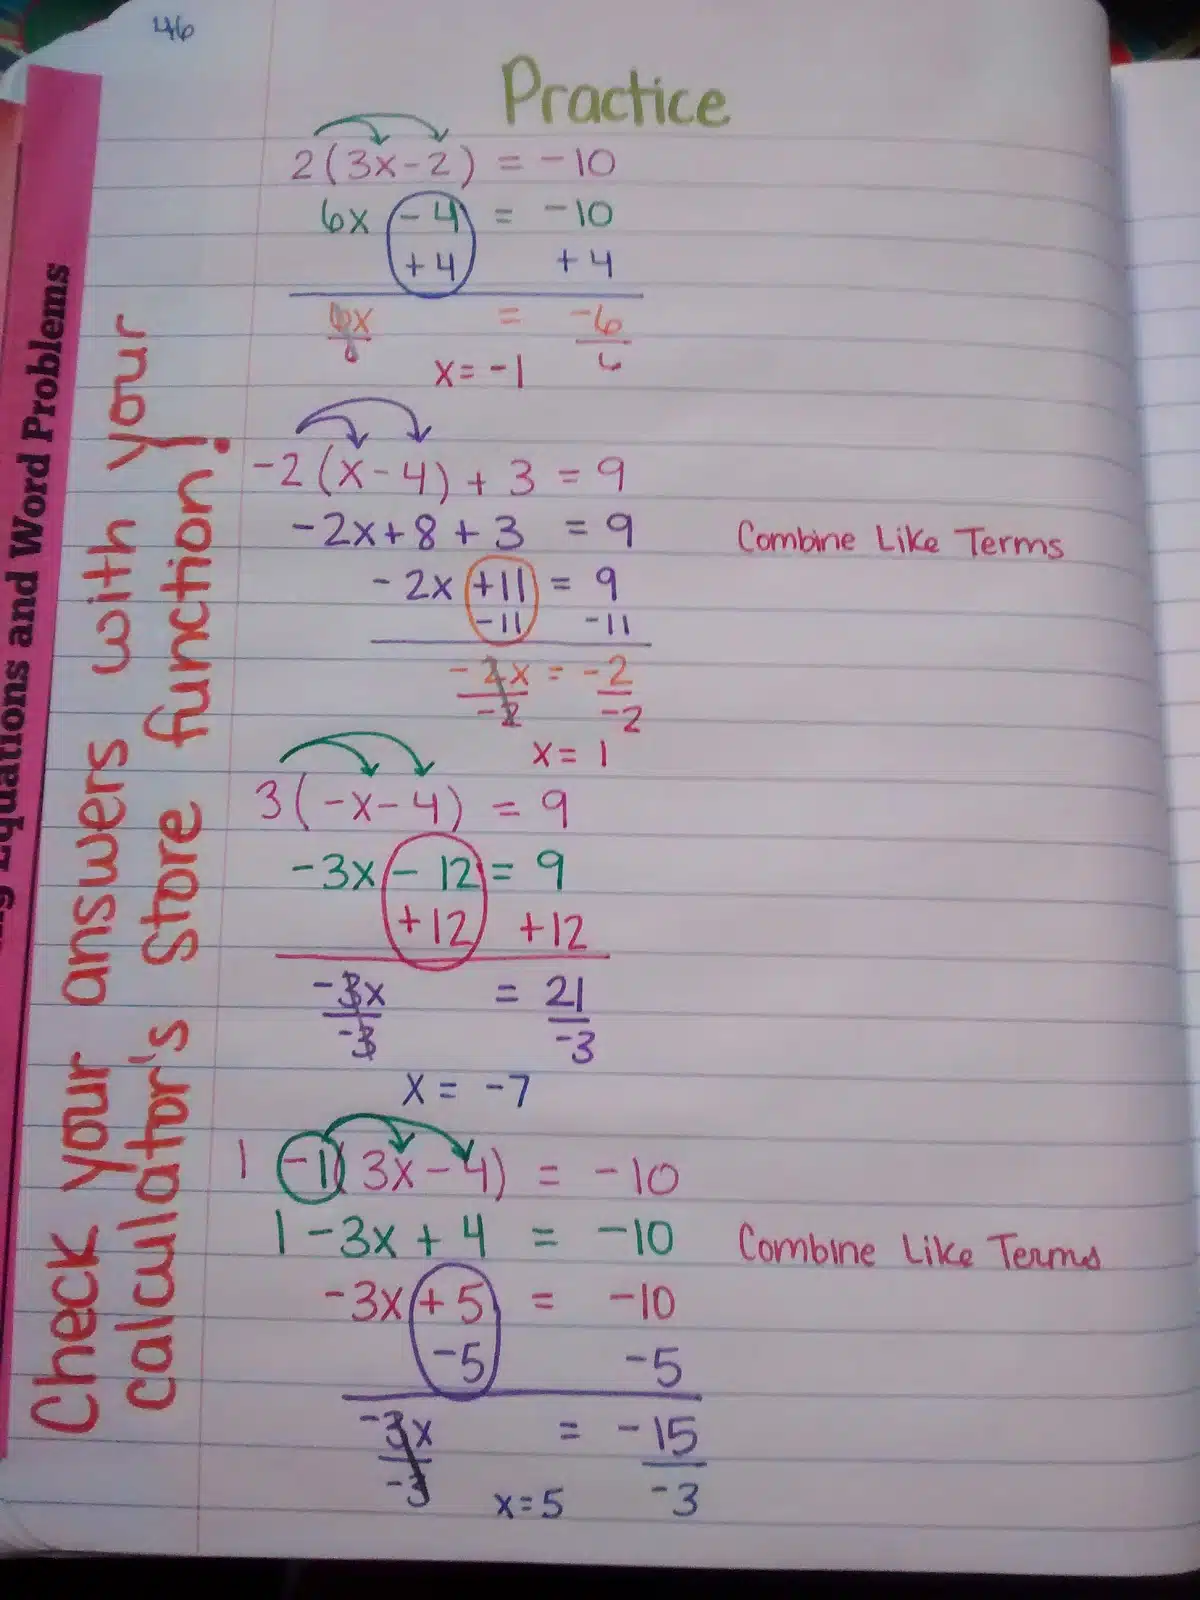 46
Practice
2(3x-2) = -10
6x -4 = -10
+4 +4
6x = -6
6 6
x = -1
-2(x-4) + 3 = 9
-2x+8+3 = 9 Combine Like Terms
-2x +11 = 9
-11 -11
-2x = -2
-2 -2
x = 1
3(-x-4) = 9
-3x - 12 = 9
+12 +12
-3x = 21
-3 -3
x = -7
1 -1(3x-4) = -10
1 -3x + 4 = -10 Combine Like Terms
-3x + 5 = -10
-5 -5
-3x = -15
-3 -3
x=5
Check your answers with your
calculator's store function!
Equations and Word Problems